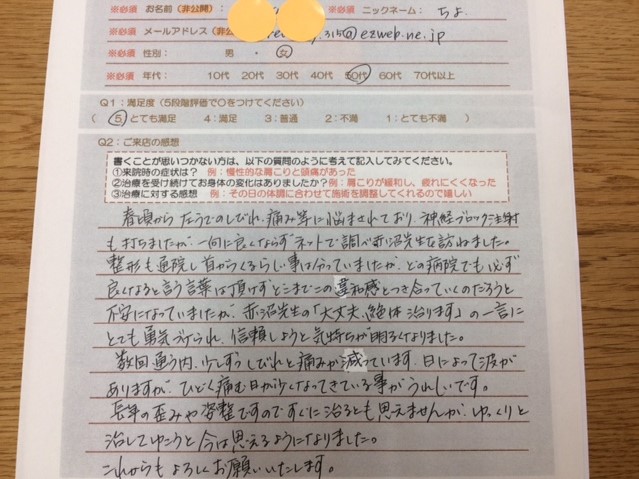 ※必須 お名前（非公開） ※必須 ニックネーム： ちよ
※必須 メールアドレス（非公 315@ezweb.ne.jp
※必須 性別： 男 ・ 女
※必須 年代： 10代 20代 30代 40代 50代 60代 70代以上
Q1：満足度（5段階評価で○をつけてください）
（ 5：とても満足 4：満足 3：普通 2：不満 1：とても不満 ）
Q2：ご来店の感想
書くことが思いつかない方は、以下の質問のように考えて記入してみてください。
①来院時の症状は？ 例：慢性的な肩こりと頭痛があった
②治療を受け続けてお身体の変化はありましたか？ 例：肩こりが緩和し、疲れにくくなった
③治療に対する感想 例：その日の体調に合わせて施術を調整してくれるので嬉しい
春頃から 左うでのしびれ、痛み等に悩まされており、神経ブロック注射
も打ちましたが、一向に良くならず ネットで調べ赤沼先生を訪ねました。
整形も通院し首からくるらしい事は分っていましたが、どの病院でも必ず
良くなると言う言葉は頂けず どこまでこの違和感とつき合っていくのだろうと
不安になっていましたが、赤沼先生の「大丈夫、絶体治ります」の一言に
とても勇気づけられ、信頼しようと気持ちが明るくなりました。
数回通う内、少しずつしびれと痛みが減っています。日によって波が
ありますが、ひどく痛む日が少くなってきている事がうれしいです。
長年の歪みや 姿整ですのですぐに治るとも思えませんが、ゆっくりと
治してゆこうと今は思えるようになりました。
これからもよろしくお願いいたします。